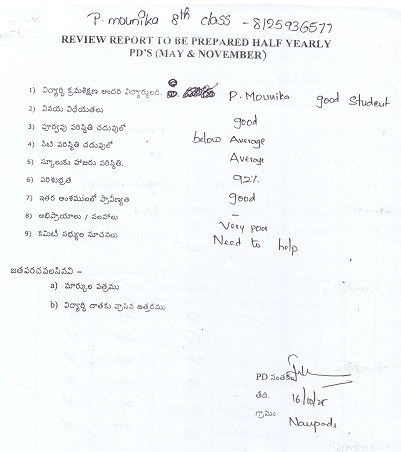 P. mounika 8th class - 8125936577
REVIEW REPORT TO BE PREPARED HALF YEARLY
PD'S (MAY & NOVEMBER)
1) విద్యార్థి క్రమశిక్షణ అందరి విద్యార్థులది. P. Mounika good Student
2) వినయ విధేయతలు good
3) పూర్వపు పరిస్థితి చదువులో below Average
4) నేటి పరిస్థితి చదువులో Average
5) స్కూలుకు హాజరు పరిస్థితి. 92%
6) పరిశుభ్రత good
7) ఇతర అంశములలో ప్రావీణ్యత -
8) అభిప్రాయాలు / సలహాలు Very poor
9) కమిటీ సభ్యుల సూచనలు Need to help
జతపరచవలసినవి –
a) మార్కుల పత్రము
b) విద్యార్థి దాతకు వ్రాసిన ఉత్తరము
PD సంతకం
తేది. 16/10/25
గ్రామం Naupada